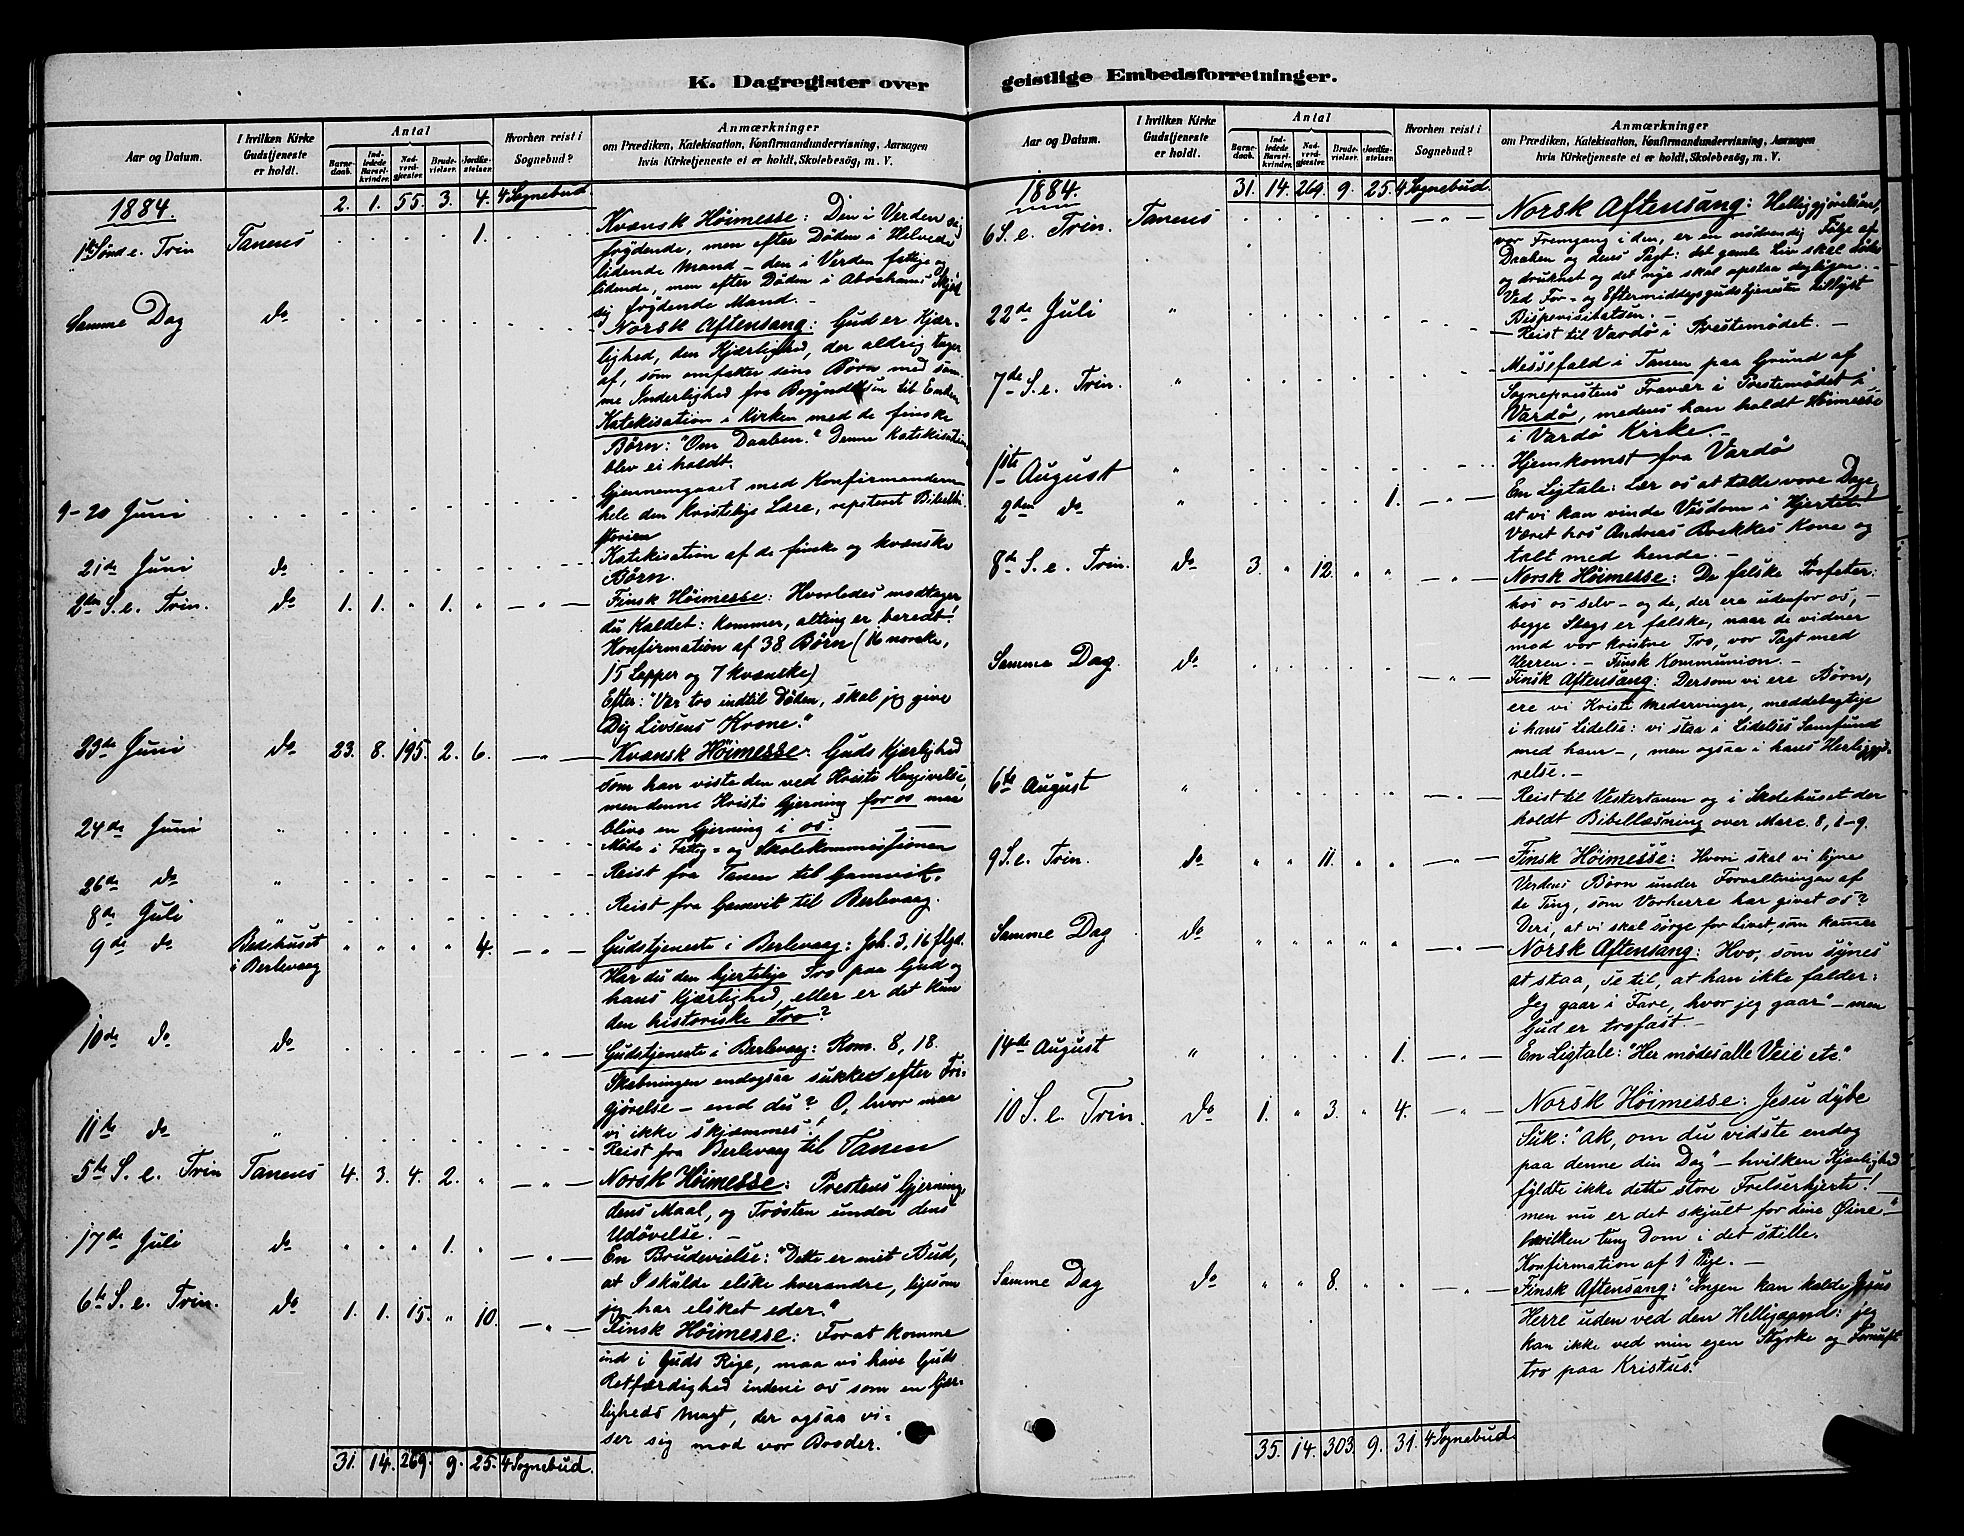 K. Dagregister over
Aar og Datum.
I hvilken Kirke Gudstjeneste er holdt.
Antal
Barnedaab.
Indledede Barselkvinder.
Nadverdgjester.
Brudevielser.
Jordfæstelser.
Hvorhen reist i Sognebud?
Anmærkninger
om Prædiken, Katekisation, Konfirmandundervisning, Aarsagen
hvis Kirketjeneste ei er holdt, Skolebesög, m. V.
1884. 2. 1. 55. 3. 4. 4 Sognebud.
1ste Sønd e. Trin Tanens 1. Kvænsk Höimesse: Den i Verden sig
frydende, men efter Døden i Helvede
lidende Mand – den i Verden fattige og
lidende, men efter Døden i Abrahams Skjød
sig frydende Mand. –
Samme Dag do Norsk Aftensang: Gud er Kjær-
lighed, den Kjærlighed, der aldrig tager
af, som omfatter sine Børn med sam-
me Inderlighed fra Begyndelsen til Enden
Katekisation i Kirken med de finske
Børn: "Om Daaben." Denne Katekisation
blev ei holdt.
9-20 Juni Gjennemgaaet med Konfirmanderne
hele den Kristelige Lære, repeteret Bibelhi-
storien
21de Juni do Katekisation af de finske og kvænske
Børn.
2den S. e. Trin. do 1. 1. " 1. " Finsk Höimesse: Hvorledes modtager
du Kaldet: kommer, alting er beredt!
Konfirmation af 38 Børn (16 norske,
15 Lapper og 7 kvænske)
Efter: "Vær tro indtil Döden, skal jeg give
Dig Livsens Krone."
23de Juni do 23. 8. 195. 2. 6. Kvænsk Höimesse: Guds Kjærlighed
som han viste den ved Kristi Hengivelse,
men denne Kristi Gjerning for os maa
blive en Gjerning i os.
24de Juni " Møde i Fattig- og Skolekommissionen
26de do " Reist fra Tanen til Gamvik.
8de Juli " Reist fra Gamvik til Berlevaag.
9de do Bedehuset i Berlevaag " " " " 4. Gudstjeneste i Berlevaag: Joh. 3, 16 flgd.
Har du den hjertelige Tro paa Gud og
hans Kjærlighed, eller er det kun
den historiske Tro?
10de do do Gudstjeneste i Berlevaag: Rom. 8, 18.
Skabningen endogsaa sukker efter Fri-
gjørelse – end du? O, hvor maa
vi ikke skjæmmes!
11te do " Reist fra Berlevaag til Tanen
5te S. e. Trin Tanens 4. 3. 4. 2. " Norsk Höimesse: Prestens Gjerning
dens Maal, og Trøsten under dens
Udøvelse. –
17de Juli do " " " 1. " En Brudevielse: "Dette er mit Bud,
at I skulde elske hverandre, ligesom
jeg har elsket eder."
6te S. e. Trin. do 1. 1. 15. " 10. Finsk Höimesse: For at komme
ind i Guds Rige, maa vi have Guds
Retfærdighed indeni os som en Kjær-
ligheds Magt, der ogsaa vi-
ser sig mod vor Broder.
31. 14. 269. 9. 25. 4 Sognebud.
geistlige Embedsforretninger.
Aar og Datum.
I hvilken Kirke Gudstjeneste er holdt.
Antal
Barnedaab.
Indledede Barselkvinder.
Nadverdgjester.
Brudevielser.
Jordfæstelser.
Hvorhen reist i Sognebud?
Anmærkninger
om Prædiken, Katekisation, Konfirmandundervisning, Aarsagen
hvis Kirketjeneste ei er holdt, Skolebesög, m. V.
1884. 31. 14. 269. 9. 25. 4 Sognebud.
6 S. e. Trin. Tanens Norsk Aftensang: Helliggjørelsen,
vor Fremgang i den, er en nødvendig Følge af
Daaben og dens Pagt: det gamle Liv skal dødes
og druknet og det nye skal opstaa dagligen. –
Ved For- og Eftermiddagsgudstjenesten tillyst
Bispevisitatsen. –
22de Juli " Reist til Vardö i Prestemødet. –
7de S. e. Trin. " Messefald i Tanen paa Grund af
Sogneprestens Fravær i Prestemødet i
Vardø, medens han holdt Höimesse
i Vardø Kirke. –
1ste August " Hjemkomst fra Vardö
2den do " 1. En Ligtale: Lær os at tælle vore Dage,
at vi kan vinde Visdom i Hjertet.
Været hos Andreas Brekkes Kone og
talt med hende. –
8de S. e. Trin. do 3. " 12. " " Norsk Höimesse: De falske Profeter:
hos os selv – og de, der ere udenfor os, –
begge Slags er falske, naar de vidner
mod vor kristne Tro, vor Pagt med
Herren. – Finsk Kommunion. –
Samme Dag. do Finsk Aftensang: Dersom vi ere Børn,
ere vi Kristi Medarvinger, meddelagtige
i hans Lidelse: vi staa i Lidelses Samfund
med ham –, men ogsaa i hans Herliggjö-
relse. –
6te August " Reist til Vestertanen og i Skolehuset der
holdt Bibellæsning over Marc. 8, 1-9.
9 S. e. Trin. do " " 11. " " Finsk Höimesse: Hvori skal vi ligne
Verdens Börn under Forvaltningen af
de Ting, som Vorherre har givet os?
Deri, at vi skal sørge for Livet, som kommer
Samme Dag do " " " " " Norsk Aftensang: Hvo, som synes
at staa, se til, at han ikke falder:
"Jeg gaar i Fare, hvor jeg gaar" – men
Gud er trofast. –
14de August " 1. En Ligtale: "Her mødes alle Veie etc."
10 S. e. Trin. do 1. " 3. " 4. Norsk Höimesse: Jesu dybe
Suk: "Ak, om du vidste endog
paa denne din Dag" – hvilken Kjærlighed
fyldte ikke dette store Frelserhjerte! –
men nu er det skjult for dine Øine –"
hvilken tung Dom i det stille.
Konfirmation af 1 Pige. –
Samme Dag do " " 8. " " Finsk Aftensang: "Ingen kan kalde Jesus
Herre uden ved den Helligaand: jeg
kan ikke ved min egen Styrke og Fornuft
tro paa Kristus."
35. 14. 303. 9. 31. 4 Sognebud.